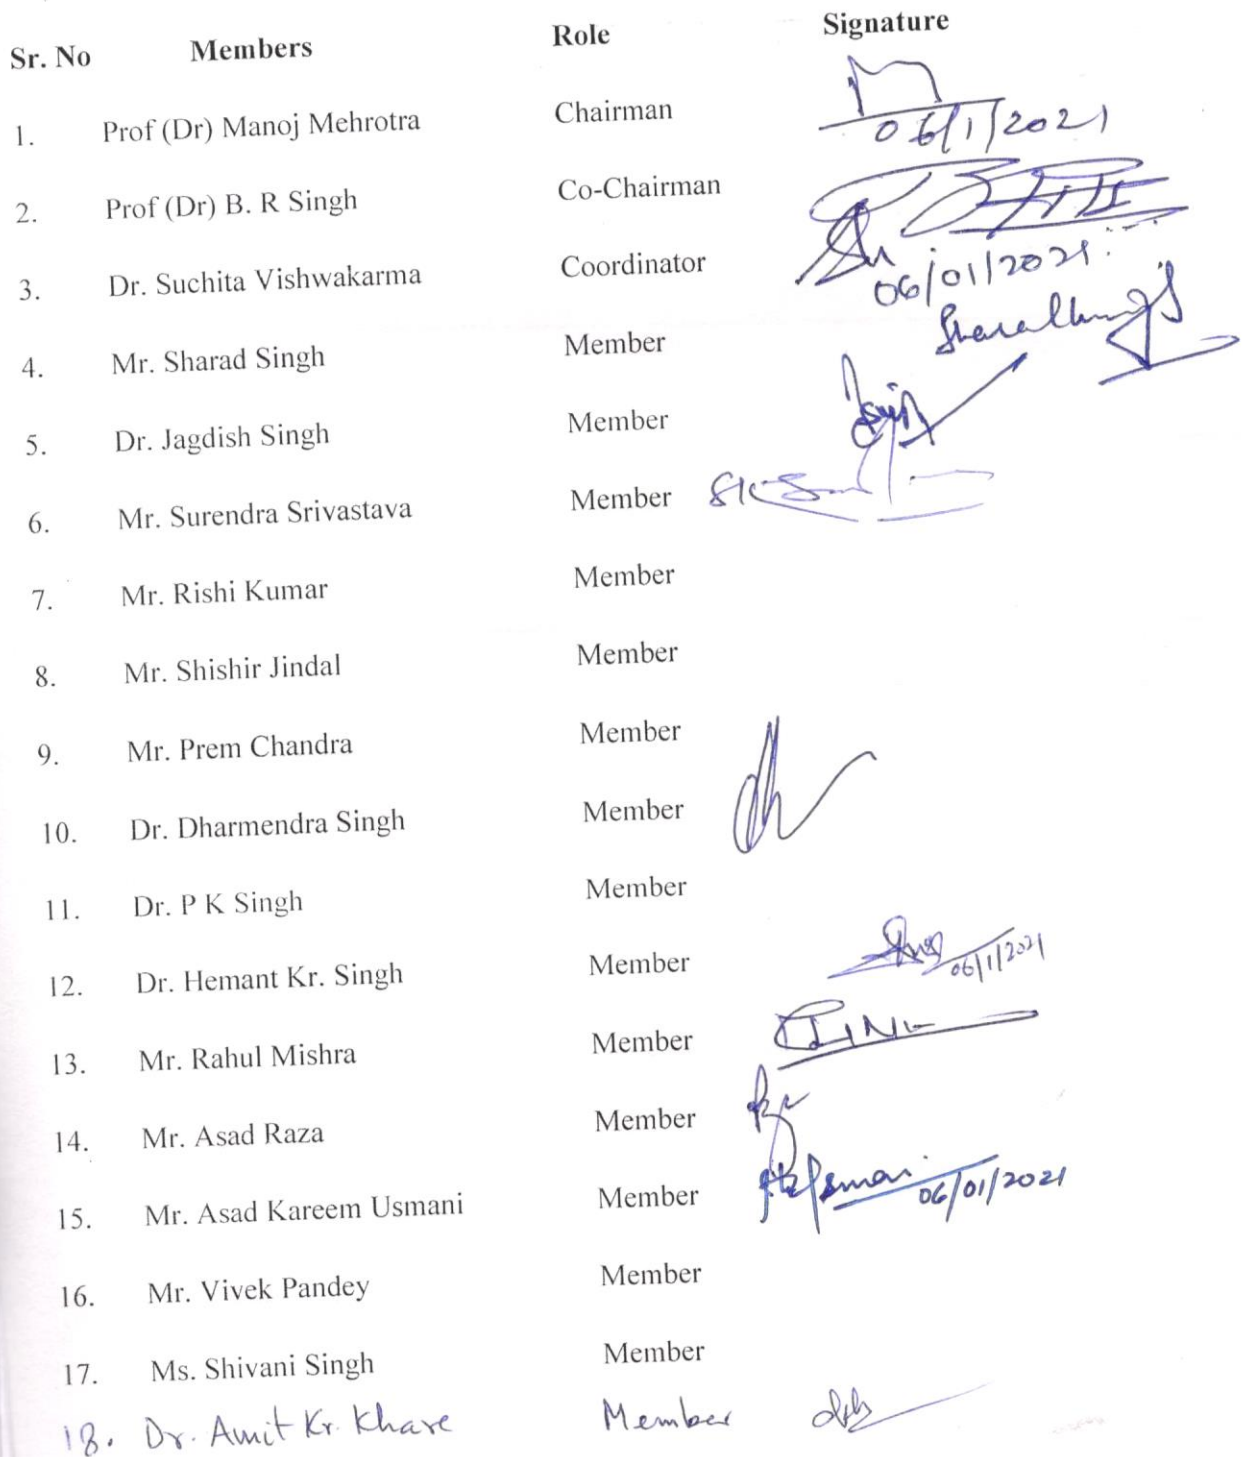 Sr. No Members Role Signature
1. Prof (Dr) Manoj Mehrotra Chairman
06/1/2021
2. Prof (Dr) B. R Singh Co-Chairman
3. Dr. Suchita Vishwakarma Coordinator 06/01/2021
4. Mr. Sharad Singh Member
5. Dr. Jagdish Singh Member
6. Mr. Surendra Srivastava Member
7. Mr. Rishi Kumar Member
8. Mr. Shishir Jindal Member
9. Mr. Prem Chandra Member
10. Dr. Dharmendra Singh Member
11. Dr. P K Singh Member
12. Dr. Hemant Kr. Singh Member 06/1/2021
13. Mr. Rahul Mishra Member
14. Mr. Asad Raza Member
15. Mr. Asad Kareem Usmani Member 06/01/2021
16. Mr. Vivek Pandey Member
17. Ms. Shivani Singh Member
18. Dr. Amit Kr. Khare Member